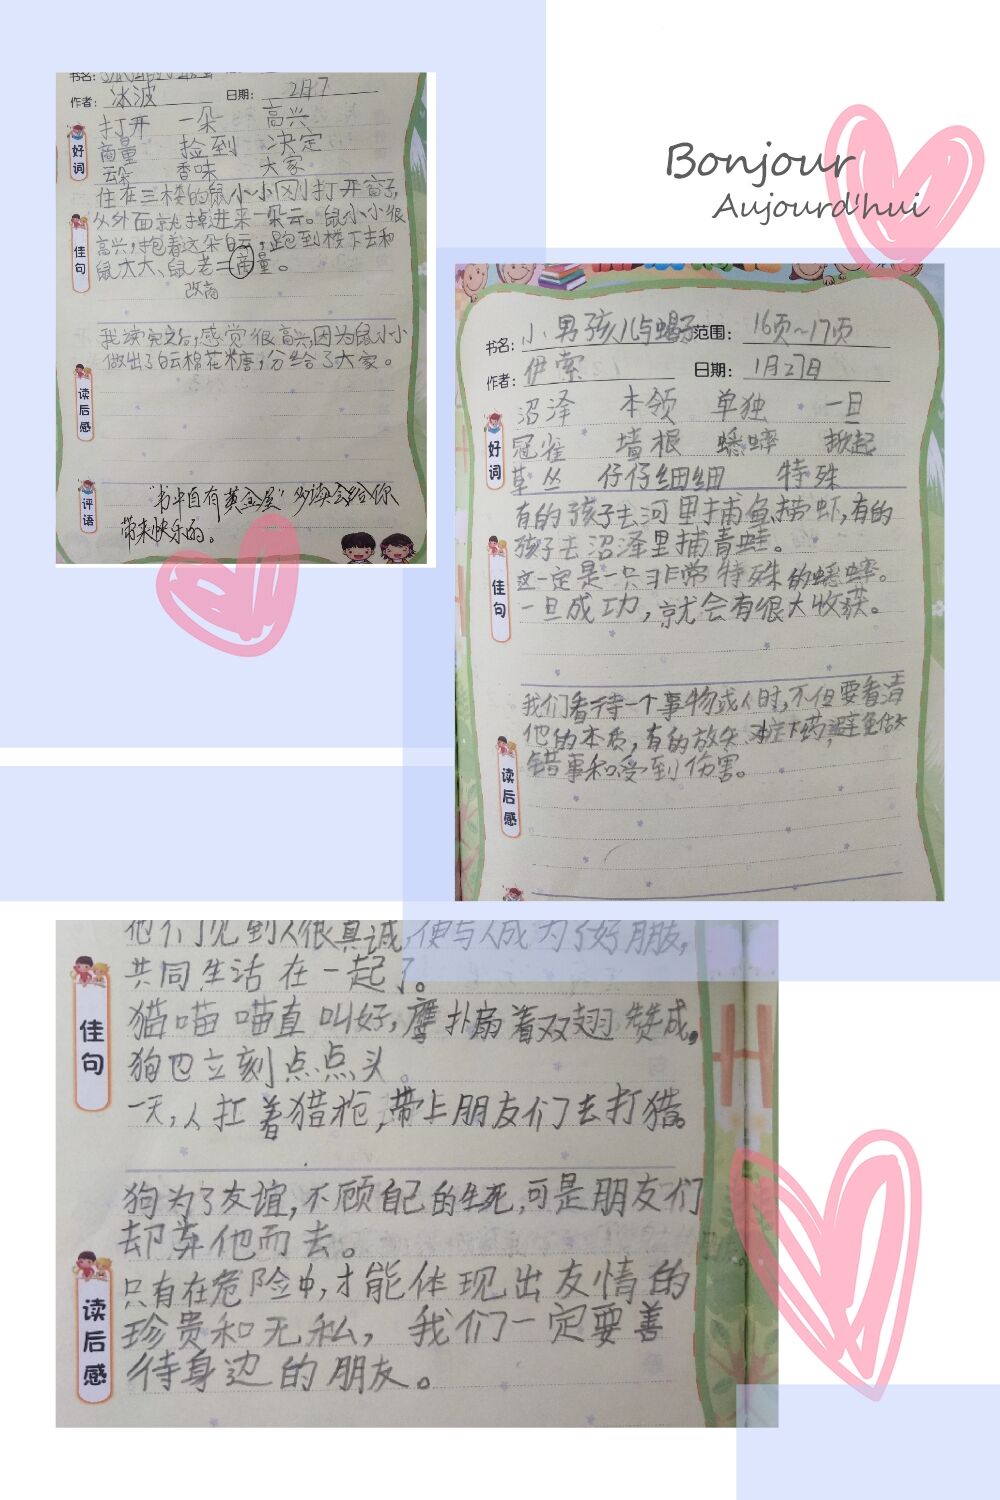 Bonjour
Aujourd'hui
书名:
作者: 冰波 日期: 2月7
好词
打开 一朵 高兴
商量 捡到 决定
云朵 香味 大家
佳句
住在三楼的鼠小小刚打开窗子,
从外面就掉进来一朵云。鼠小小很
高兴,抱着这朵白云,跑到楼下去和
鼠大大、鼠老二商量。
改商
读后感
我读完之后,感觉很高兴,因为鼠小小
做出了白云棉花米糖,分给了大家。
评语
"书中自有黄金屋"多读会给你
带来快乐的。
书名: 小男孩儿与蝎子 范围: 16页~17页
作者: 伊索 日期: 1月27日
好词
沼泽 本领 单独 一旦
冠雀 墙根 蟋蟀 掀起
草丛 仔仔细细 特殊
佳句
有的孩子去河里捕鱼捞虾,有的
孩子去沼泽里捕青蛙。
这一定是一只非常特殊的蟋蟀。
一旦成功,就会有很大收获。
读后感
我们看待一个事物或人时,不但要看清
他的本质,有的放矢 对症下药,避免做
错事和受到伤害。
佳句
他们见到人很真诚,便与人成为了好朋友,
共同生活在一起了。
猫喵喵直叫好,鹰扑扇着双翅赞成,
狗也立刻点点头。
一天,人扛着猎枪,带上朋友们去打猎。
读后感
狗为了友谊,不顾自己的生死,可是朋友们
却弃他而去。
只有在危险中,才能体现出友情的
珍贵和无私, 我们一定要善
待身边的朋友。